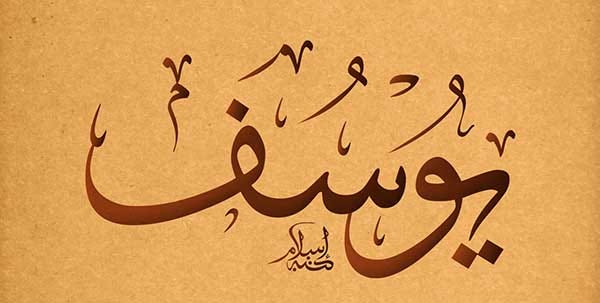 يوسف
إسلام
كتبه